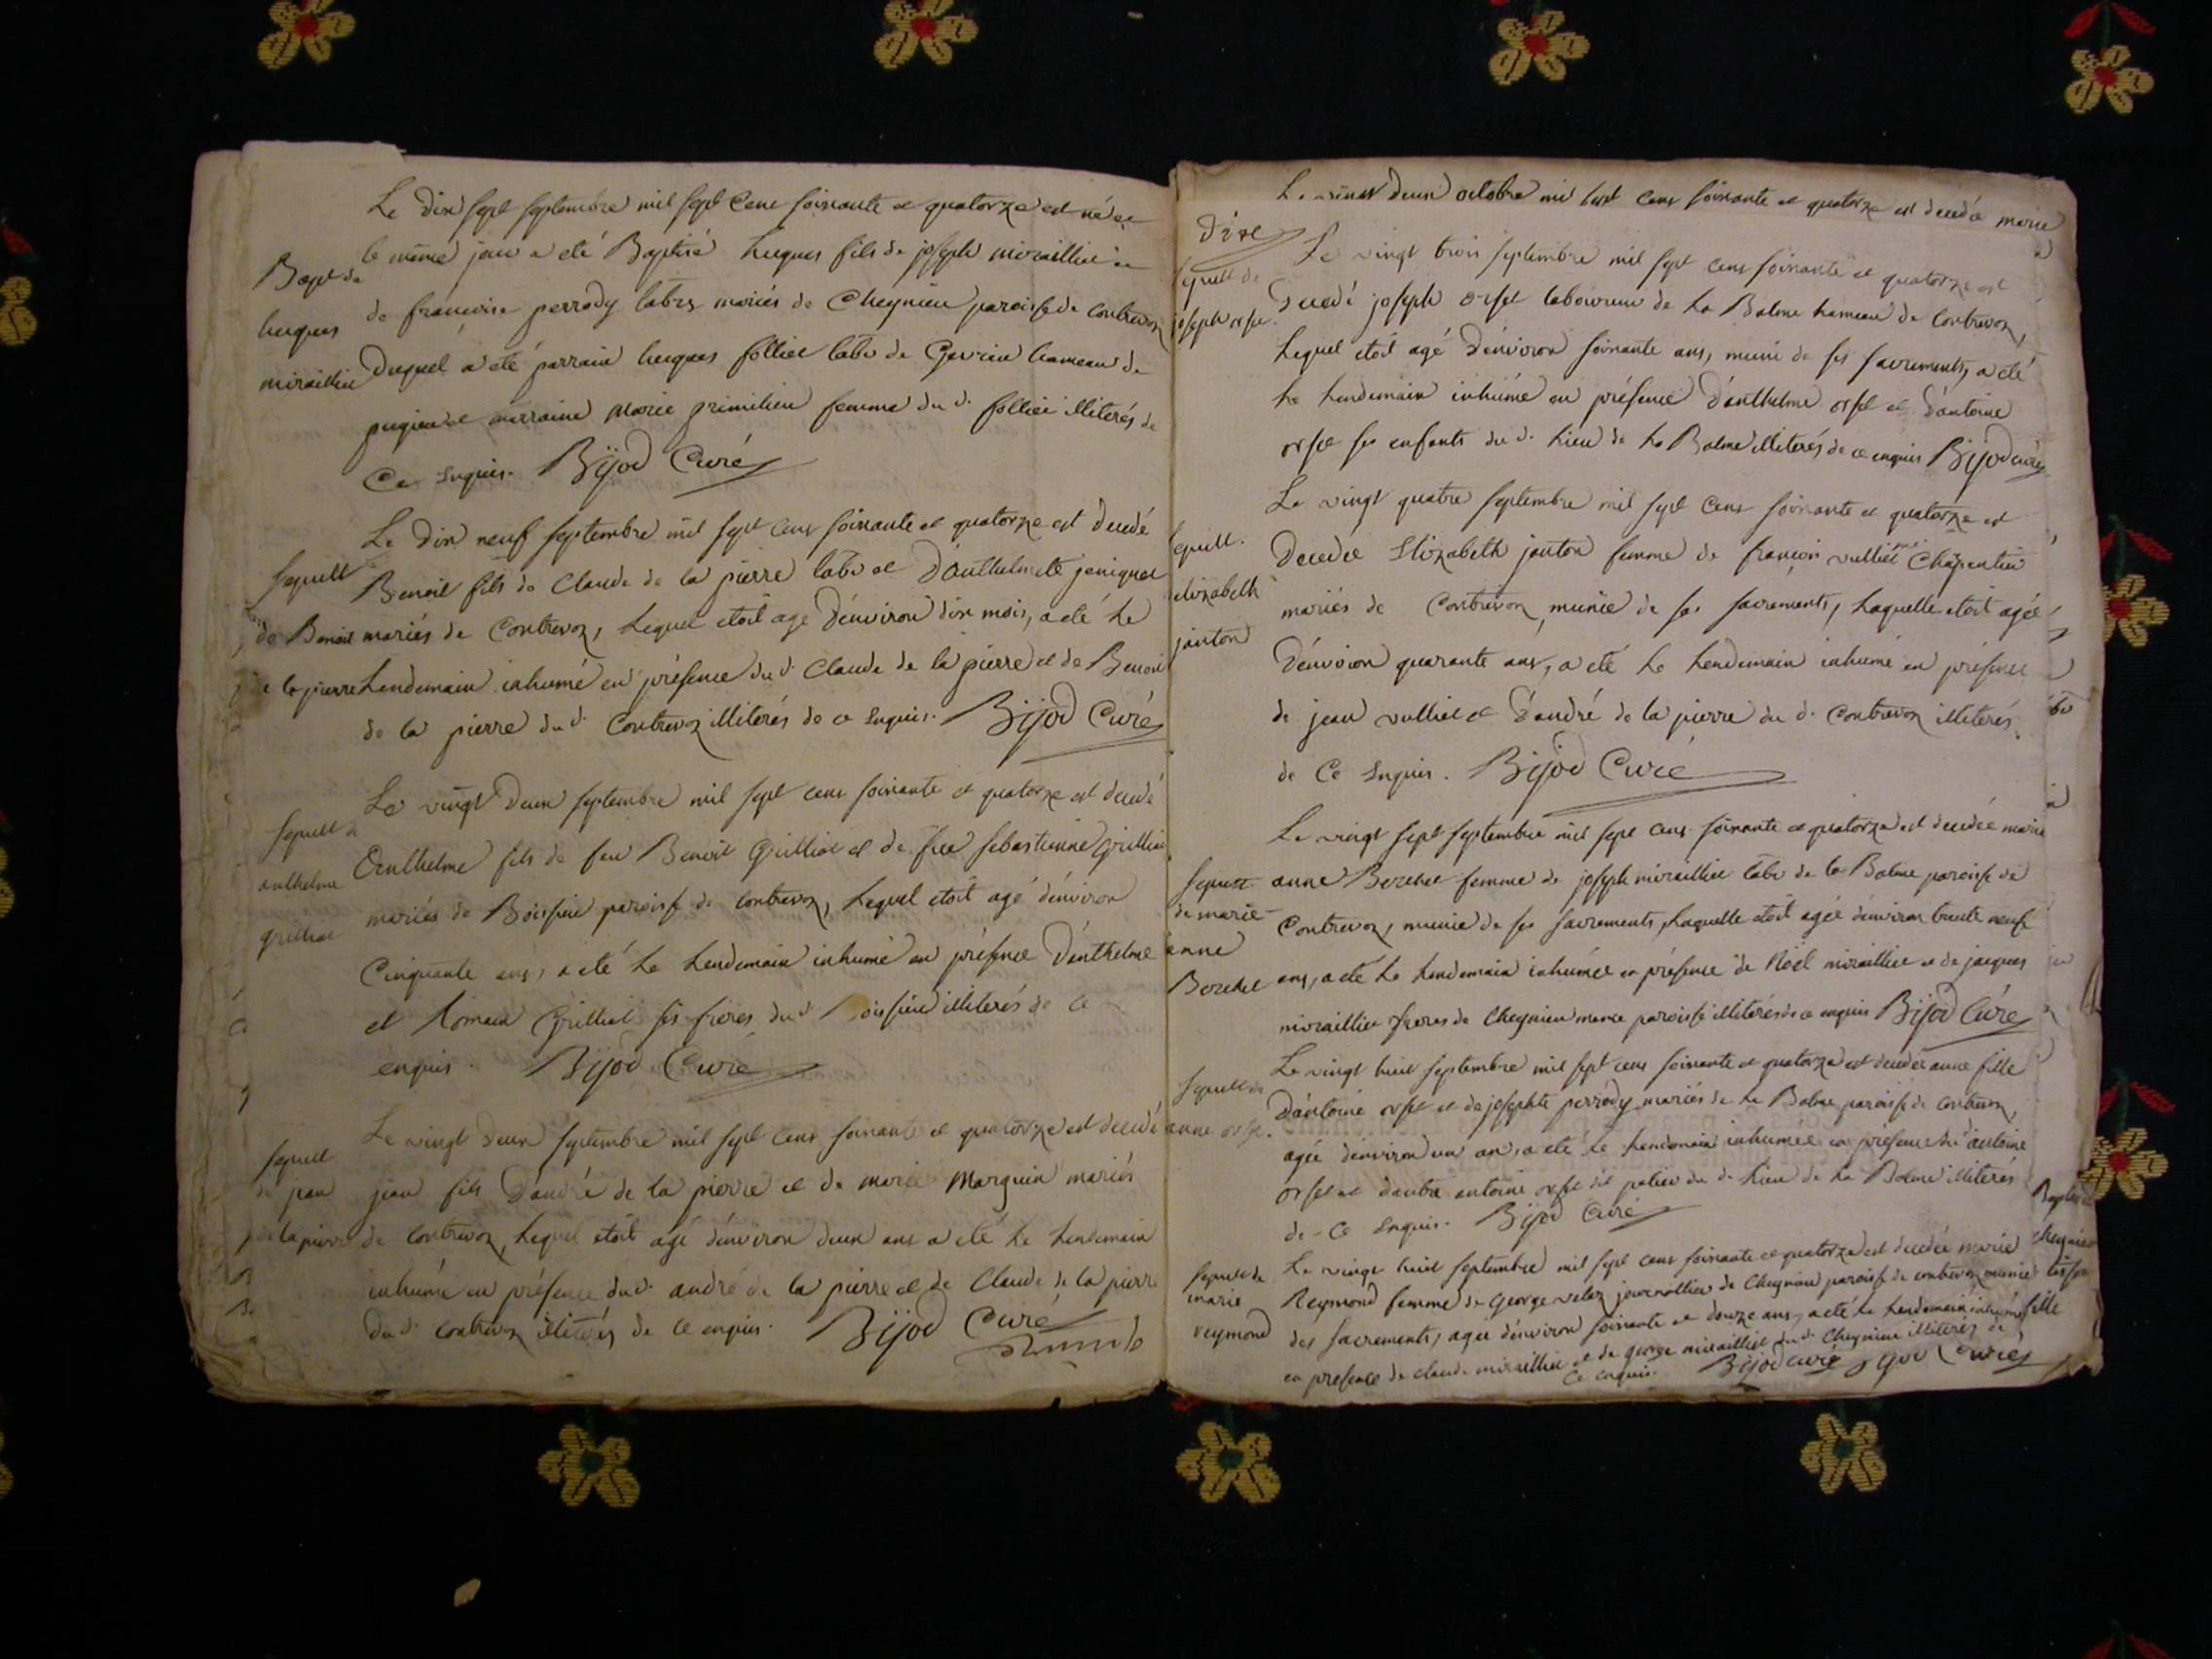 Le dix sept septembre mil sept cens soixante et quatorze est né et
le même jour a eté Baptisé hugues fils de joseph miraillier et
de françoise perrody labrs mariés de Cheynieu paroisse de Contrevoz
Duquel a eté parrain hugues follier labr de Gevrin hameau de
pugieu et marraine Marie primilieu femme du d. follier illiterés de
Ce Enquis. Bijod Curé
Bapt de
hugues
miraillier
Le dix neuf septembre mil sept cens soixante et quatorze est decedé
Benoit fils de Claude de la pierre labr et D'Anthelmette
mariés de Contrevoz, lequel etoit agé d'environ dix mois, a eté le
lendemain inhumé en présence du d. Claude de la pierre et de Benoit
de la pierre du d. Contrevoz illiterés de ce Enquis. Bijod Curé
sepult
de Benoit
de la pierre
Le vingt deux septembre mil sept cens soixante et quatorze est decedé
Anthelme fils de feu Benoit Grilliat et de feue sebastienne
mariés de Boissieu paroisse de Contrevoz, lequel etoit agé d'environ
Cinquante ans, a eté le lendemain inhumé en présence d'Anthelme
et Romain Grilliat ses freres du d. Boissieu illiterés de ce
enquis. Bijod Curé
sepult de
anthelme
grilliat
Le vingt deux septembre mil sept cens soixante et quatorze est decedé
jean fils D'andré de la pierre et de marie Marguin mariés
de Contrevoz, lequel etoit agé d'environ deux ans a eté le lendemain
inhumé en présence du d. andré de la pierre et de Claude de la pierre
du d. Contrevoz illiterés de ce enquis. Bijod Curé
sepult
de jean
de la pierre
Le vingt deux octobre mil sept cens soixante et quatorze est decedée marie
dixe
Le vingt trois septembre mil sept cens soixante et quatorze est
Decedé joseph orset laboureur de la Balme hameau de Contrevoz,
lequel etoit agé d'environ soixante ans, muni de ses sacrements, a eté
le lendemain inhumé en présence d'anthelme orset et d'antoine
orset ses enfants du d. lieu de la Balme illiterés de ce enquis Bijod curé
sepult de
joseph orset
Le vingt quatre septembre mil sept cens soixante et quatorze est
Decedée Elizabeth janton femme de françois vulliet Charpentier
mariés de Contrevoz, munie de ses sacrements, laquelle etoit agée
D'environ quarante ans, a eté le lendemain inhumé en présence
de jean vulliet et D'andré de la pierre du d. Contrevoz illiterés
de Ce Enquis. Bijod Curé
sepult.
elizabeth
janton
Le vingt sept septembre mil sept cens soixante et quatorze est decedée marie
anne Berchet femme de joseph miraillier labr de la Balme paroisse de
Contrevoz, munie de ses sacrements, laquelle etoit agée d'environ trente neuf
ans, a eté le lendemain inhumée en présence de Noël miraillier et de jacques
miraillier freres de Cheynieu meme paroisse illiterés de ce enquis Bijod Curé
sepult
de marie
anne
Berchet
Le vingt huit septembre mil sept cens soixante et quatorze est decedée anne fille
D'antoine orset et de josephte perrody mariés de la Balme paroisse de Contrevoz,
agée d'environ un an, a eté le lendemain inhumée en présence du d. antoine
orset et d'autre antoine orset dit du d. lieu de la Balme illiterés
de Ce Enquis. Bijod Curé
sepult de
anne orset.
Le vingt huit septembre mil sept cens soixante et quatorze est decedée marie
Reymond femme de George journallier de Cheynieu paroisse de contrevoz munie
des sacrements, agée d'environ soixante et douze ans, a eté le lendemain inhumé
en présence de claude miraillier et de george miraillier du d. Cheynieu illiterés de
Ce enquis. Bijod curé
sepult de
marie
reymond
Cheynieu
fille
Curé